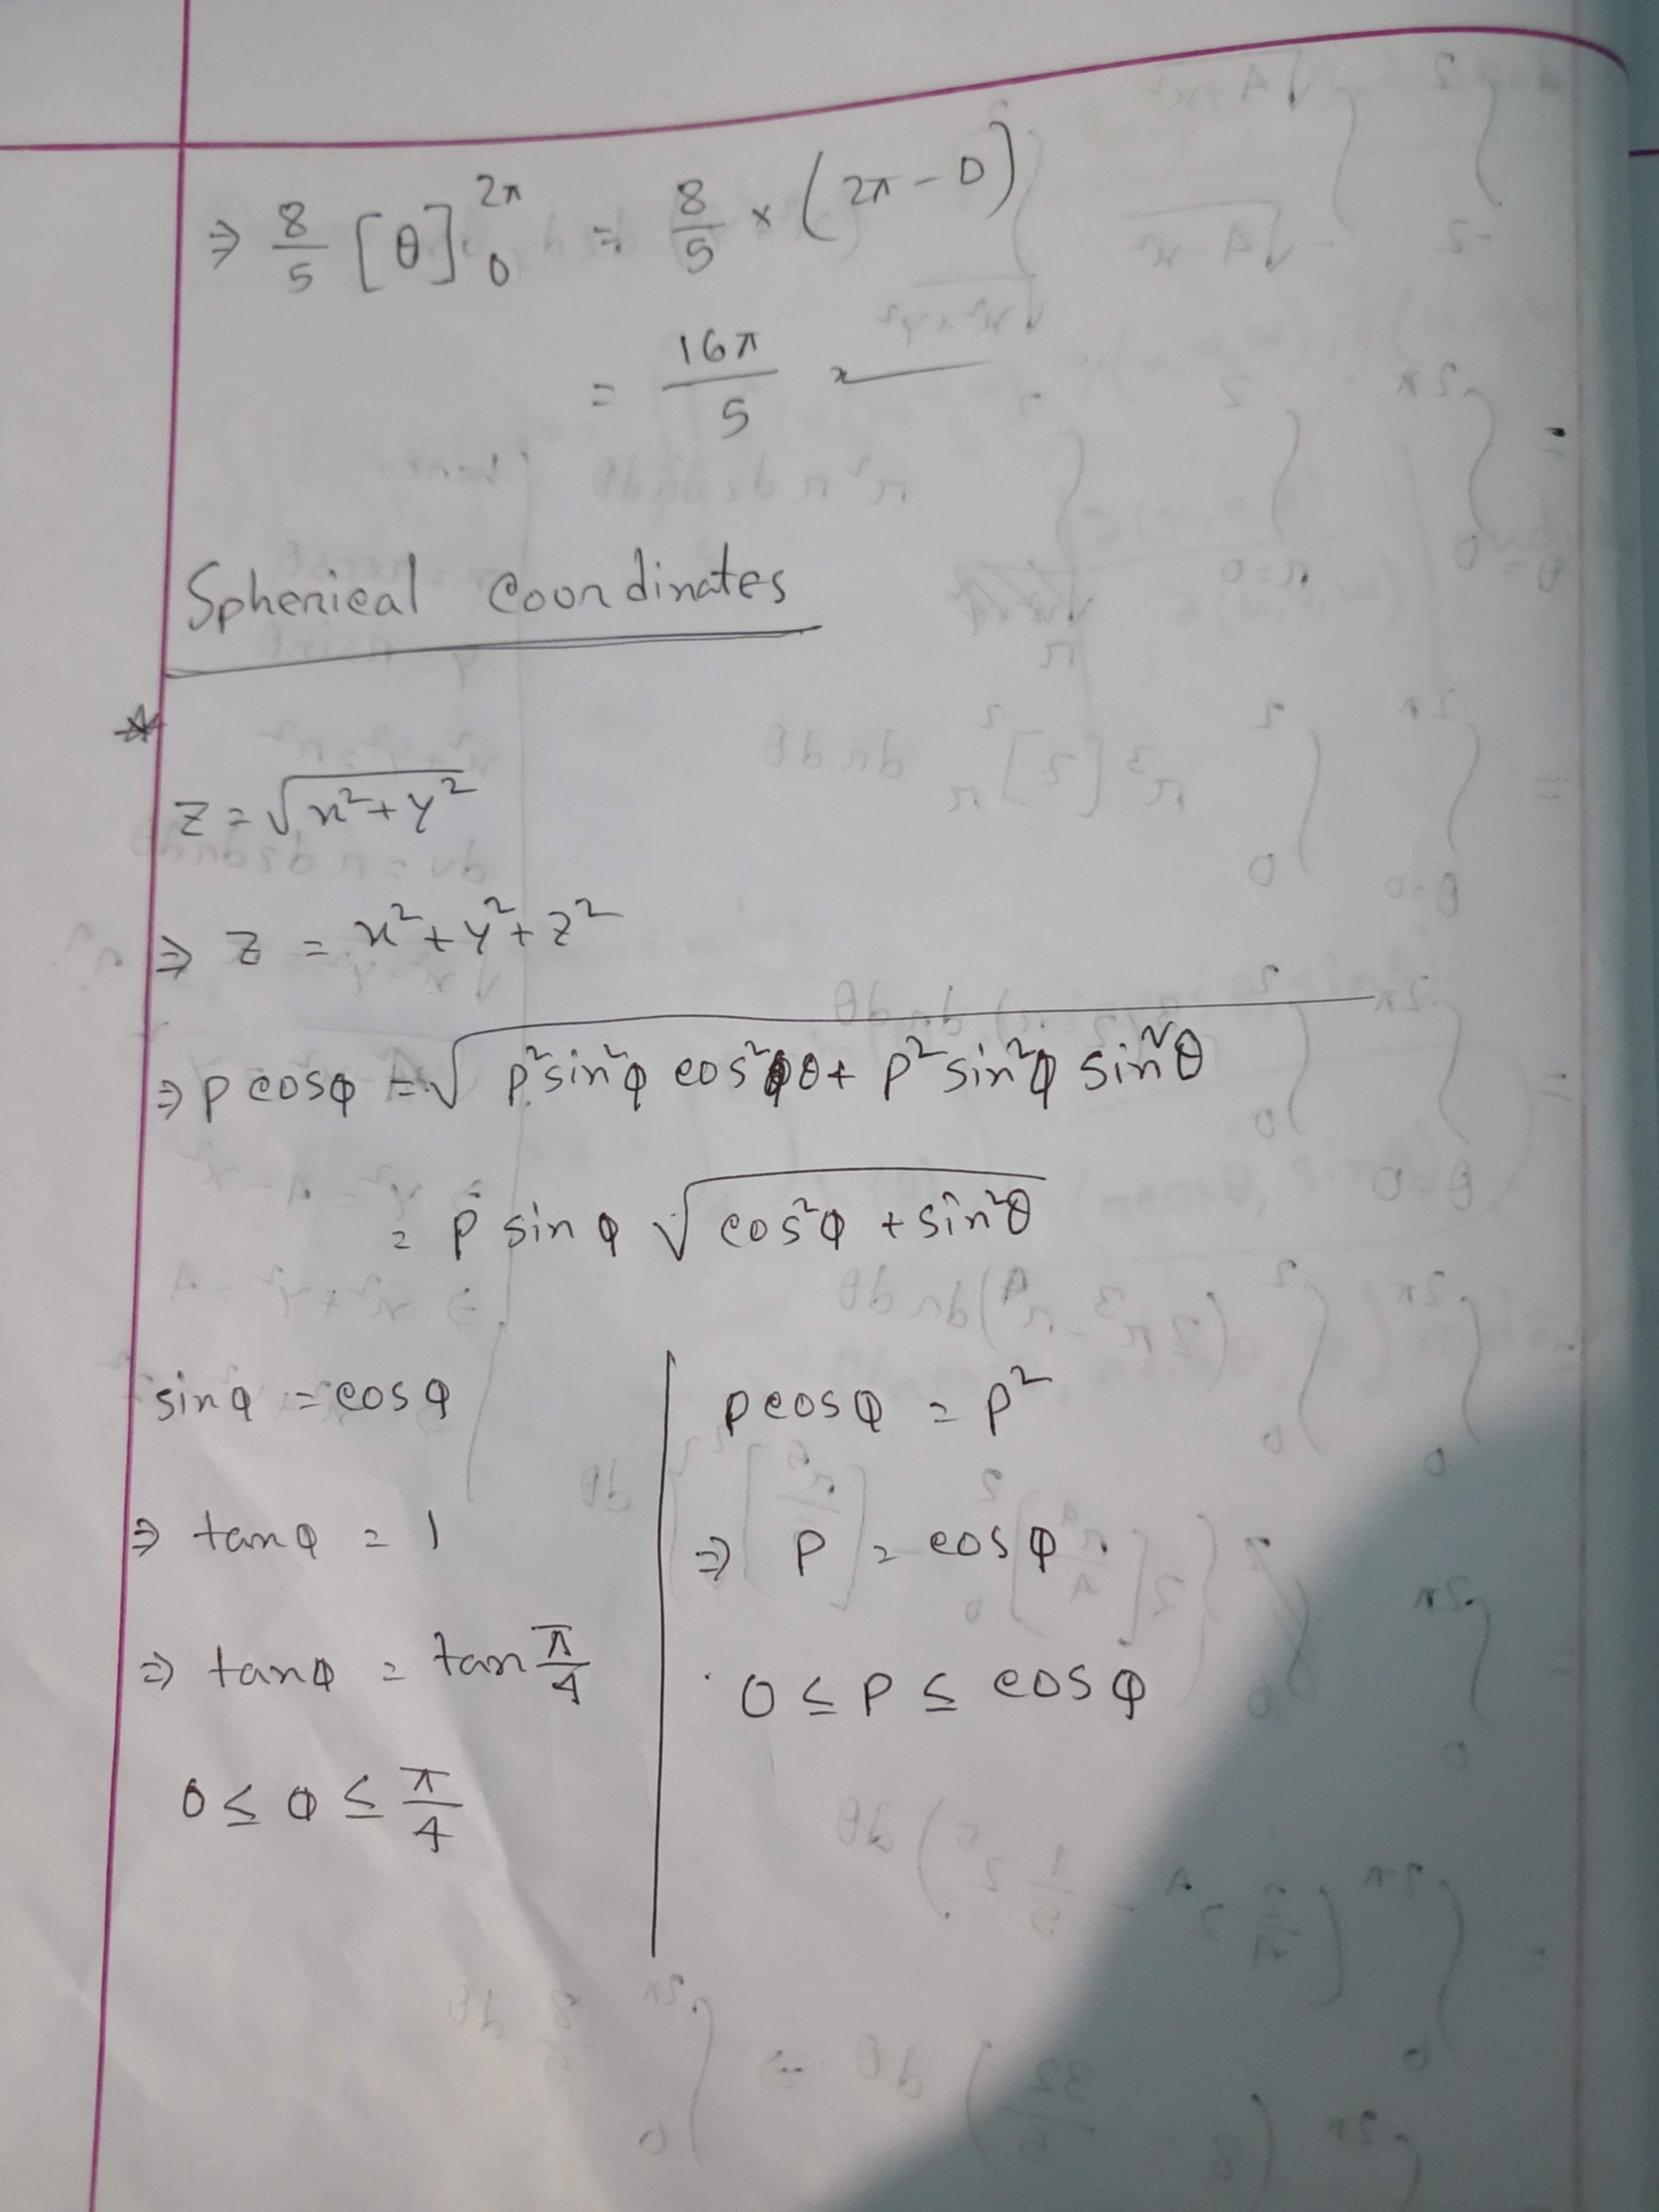 ⇒ 8/5 [θ]₀^2π = 8/5 × (2π - 0)
= 16π/5
Spherical Coordinates
z = √(x² + y²)
⇒ z = x² + y² + z²
⇒ ρ cosφ = √(ρ² sin²φ cos²θ + ρ² sin²φ sin²θ)
= ρ sinφ √(cos²φ + sin²θ)
sinφ = cosφ
⇒ tanφ = 1
⇒ tanφ = tan π/4
0 ≤ φ ≤ π/4
ρ cosφ = ρ²
⇒ ρ = cosφ
0 ≤ ρ ≤ cosφ